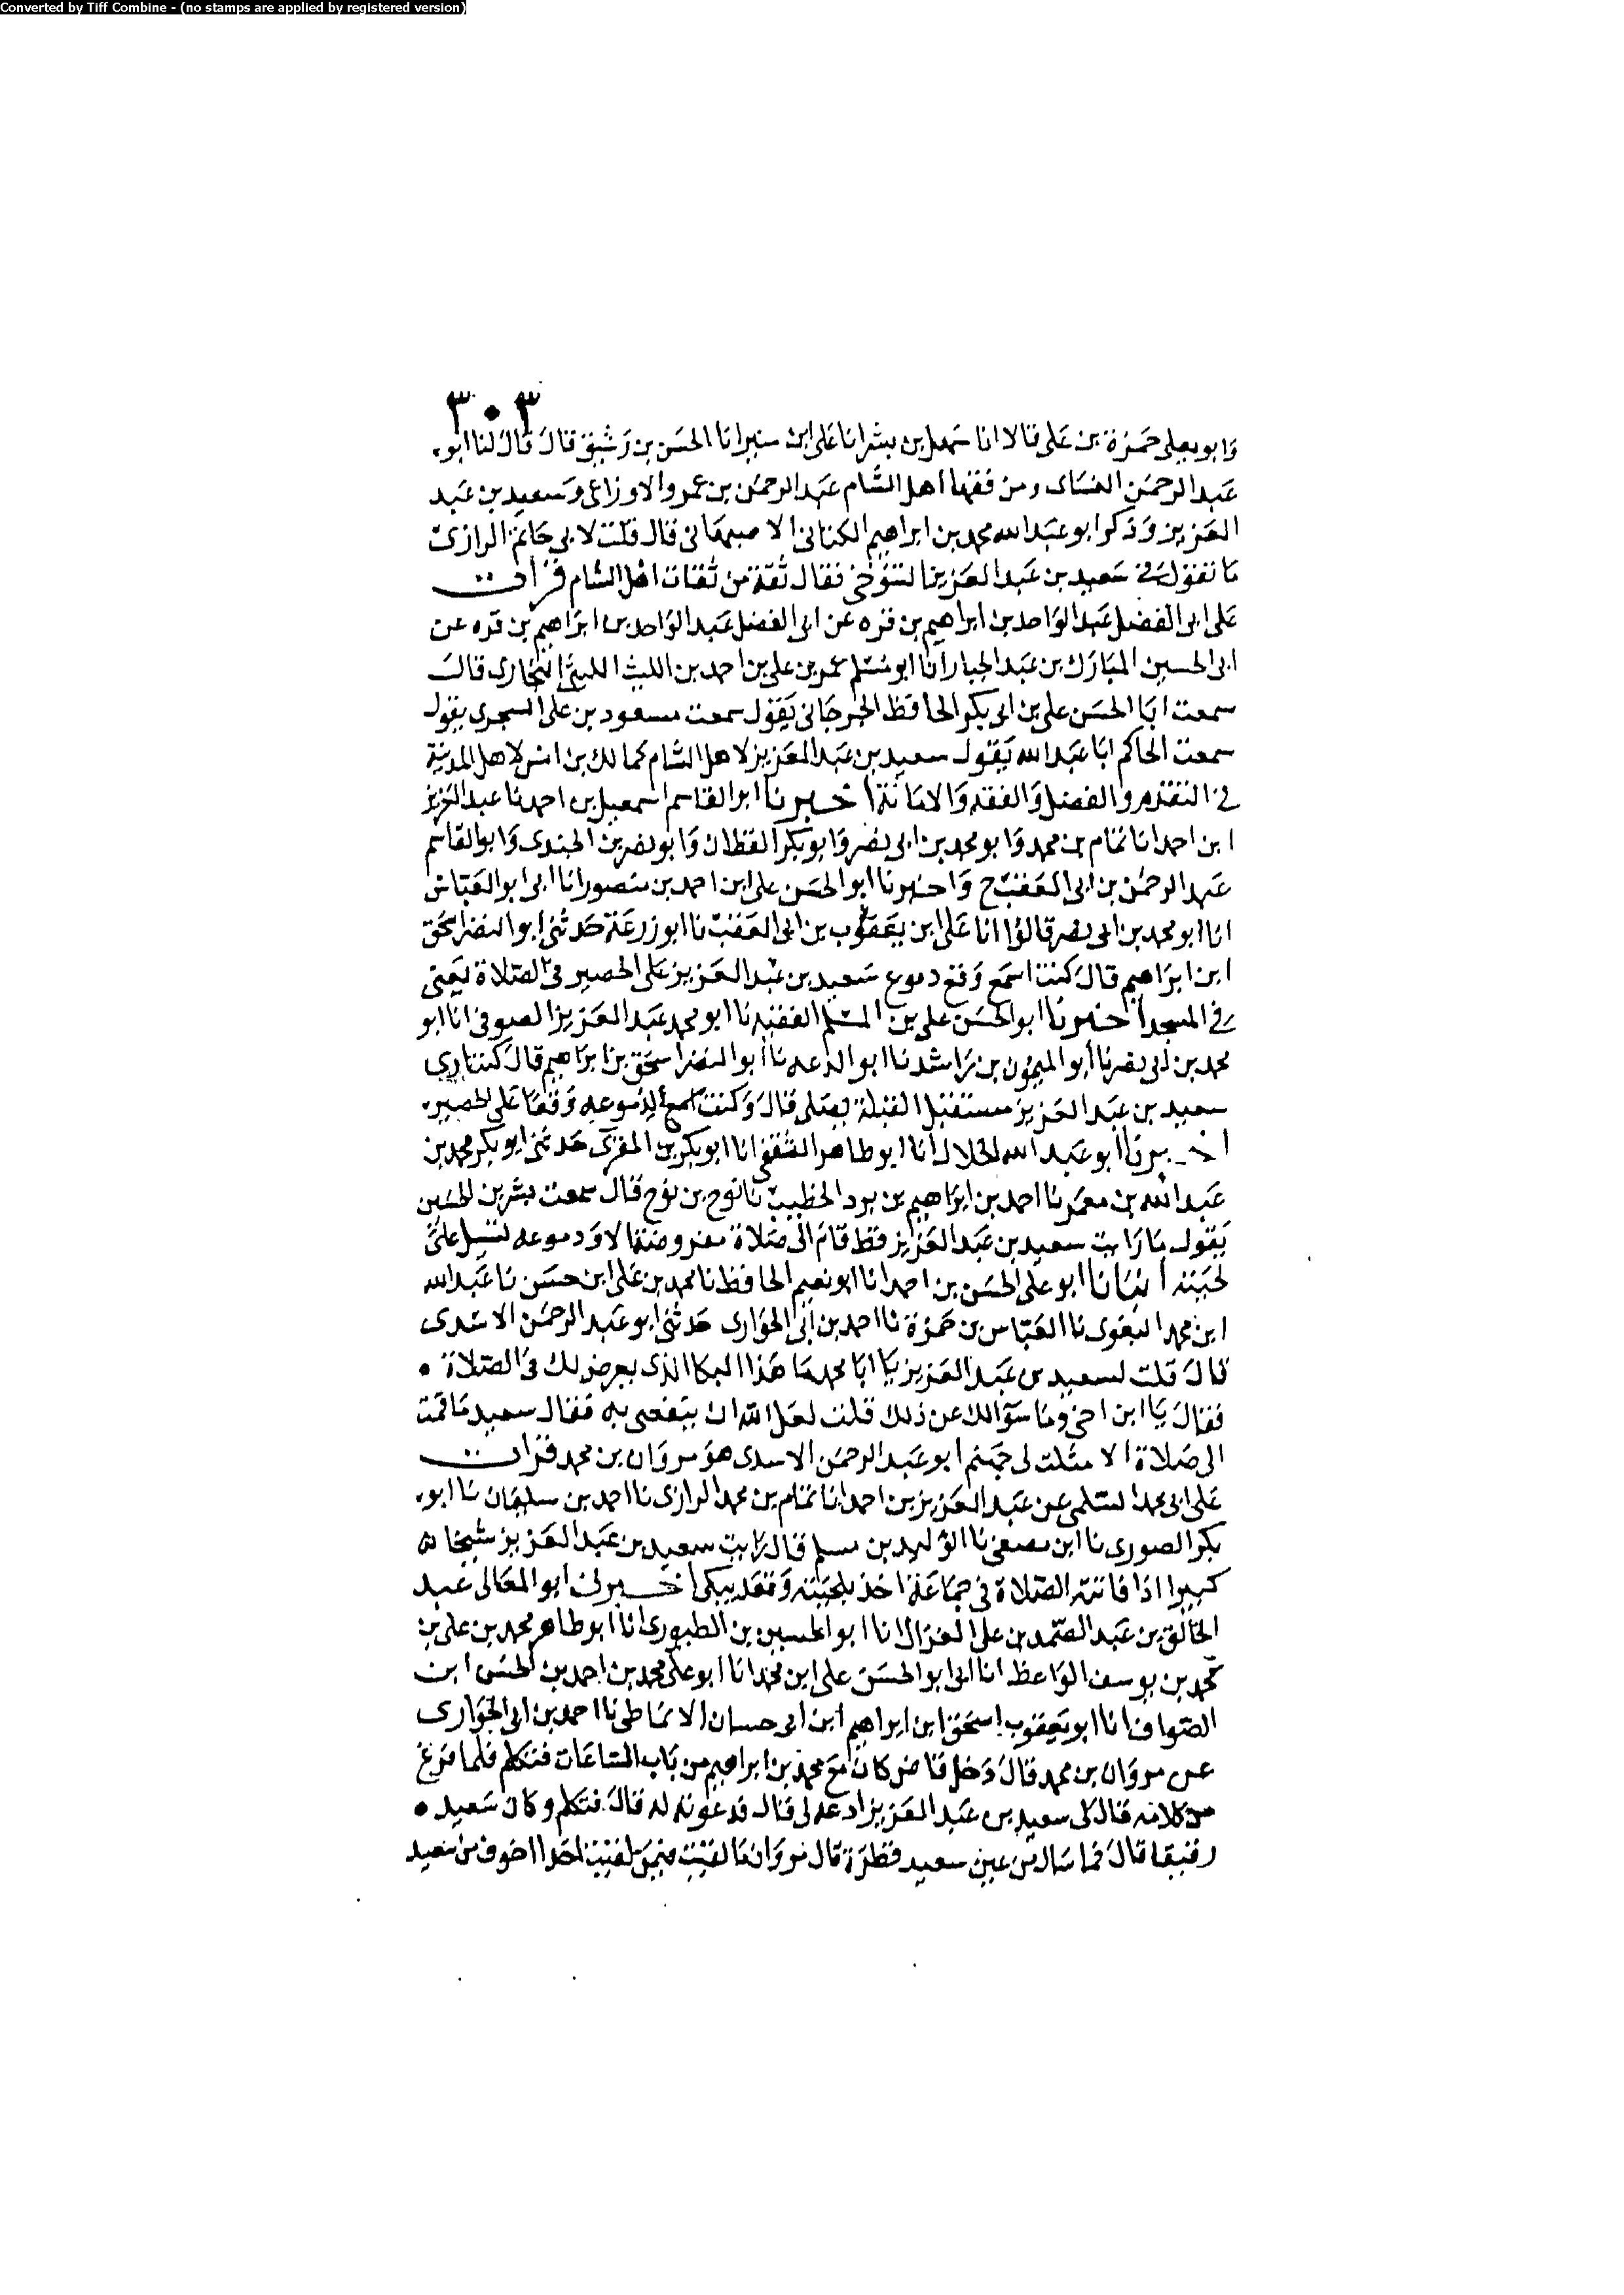 Converted by Tiff Combine - (no stamps are applied by registered version)
٣٠٣
وابو يعلى حمزة بن على قالا انا سهل بن بشر انا على ابن منير انا الحسن بن رشيق قال قال لنا ابو
عبد الرحمن النساى ومن فقها اهل الشام عبد الرحمن بن عمرو الاوزاعى وسعيد بن عبد
العزيز وذكر ابو عبد الله محمد بن ابراهيم الكنانى الاصبهانى قال قلت لابى حاتم الرازى
ما تقول فى سعيد بن عبد العزيز التنوخى فقال ثقة من ثقات اهل الشام قرات
على ابى الفضل عبد الواحد بن ابراهيم بن قره عن ابى الفضل عبد الواحد بن ابراهيم بن قره عن
ابى الحسين المبارك بن عبد الجبار انا ابو مسلم عمر بن على بن احمد بن الليث الليثى البخارى قال
سمعت ابا الحسن على بن ابى بكر الحافظ الجرجانى يقول سمعت مسعود بن على السجزى يقول
سمعت الحاكم ابا عبد الله يقول سعيد بن عبد العزيز لاهل الشام كمالك بن انس لاهل المدينة
فى التقدم والفضل والفقه والامانة اخبرنا ابو القاسم اسمعيل بن احمد نا عبد العزيز
ابن احمد انا تمام بن محمد وابو محمد بن ابى نصر وابو بكر القطان وابو نصر بن الجندى وابو القاسم
عبد الرحمن بن ابى العقب ح واخبرنا ابو الحسن على ابن احمد بن منصور انا ابى ابو العباس
انا ابو محمد بن ابى نصر قالوا انا على ابن يعقوب بن ابى العقب نا ابو زرعة حدثنى ابو النضر اسحق
ابن ابراهيم قال كنت اسمع وقع دموع سعيد بن عبد العزيز على الحصير فى الصلاة يعنى
فى المسجد اخبرنا ابو الحسن على بن المسلم الفقيه نا ابو محمد عبد العزيز الصوفى انا ابو
محمد بن ابى نصر نا ابو الميمون بن راشد نا ابو الدعه نا ابو النضر اسحق بن ابراهيم قال كنت ارى
سعيد بن عبد العزيز مستقبل القبلة يصلى قال وكنت اسمع لدموعه وقعا على الحصير
اخبرنا ابو عبد الله الخلال انا ابو طاهر الثقفى انا ابو بكر بن المقرى حدثنى ابو بكر محمد بن
عبد الله بن معمر نا احمد بن ابراهيم بن برد الخطيب نا نوح بن نوح قال سمعت بشر بن الحسين
يقول ما رايت سعيد بن عبد العزيز قط قام الى صلاة مفروضة الا ودموعه تسيل على
لحيته انبانا ابو على الحسن بن احمد انا ابو نعيم الحافظ نا محمد بن على ابن حسن نا عبد الله
ابن محمد البغوى نا العباس بن حمزة نا احمد بن ابى الحوارى حدثنى ابو عبد الرحمن الاسدى
قال قلت لسعيد بن عبد العزيز يا ابا محمد ما هذا البكا الذى يعرض لك فى الصلاة
فقال يا ابن اخى وما سؤالك عن ذلك قلت لعل الله ان ينفعنى به فقال سعيد ما قمت
الى صلاة الا مثلت لى جهنم ابو عبد الرحمن الاسدى هو مروان بن محمد قرات
على ابى محمد السلمى عن عبد العزيز بن احمد انا تمام بن محمد الرازى نا احمد بن سليمان نا ابو
بكر الصورى نا ابن مصفى نا الوليد بن مسلم قال رايت سعيد بن عبد العزيز شيخا
كبيرا اذا فاتته الصلاة فى جماعة اخذ بلحيته وقعد يبكى اخبرنى ابو المعالى عبد
الخالق بن عبد الصمد بن على الغزال انا ابو الحسين بن الطيورى انا ابو طاهر محمد بن على بن
محمد بن يوسف الواعظ انا ابى ابو الحسن على ابن محمد انا ابو على محمد بن احمد بن الحسن ابن
الصواف انا ابو يعقوب اسحق ابن ابراهيم ابن ابى حسان الانماطى نا احمد بن ابى الحوارى
عن مروان بن محمد قال دخل قاض كان مع محمد بن ابراهيم من باب الساعات فتكلم فلما فرغ
من كلامه قال لى سعيد بن عبد العزيز ادعه لى قال فدعوته له قال فتكلم وكان سعيد
رفيقا قال فما سال من عين سعيد قطرة قال مروان ما لقيت فيمن لقيت احدا اخوف من سعيد